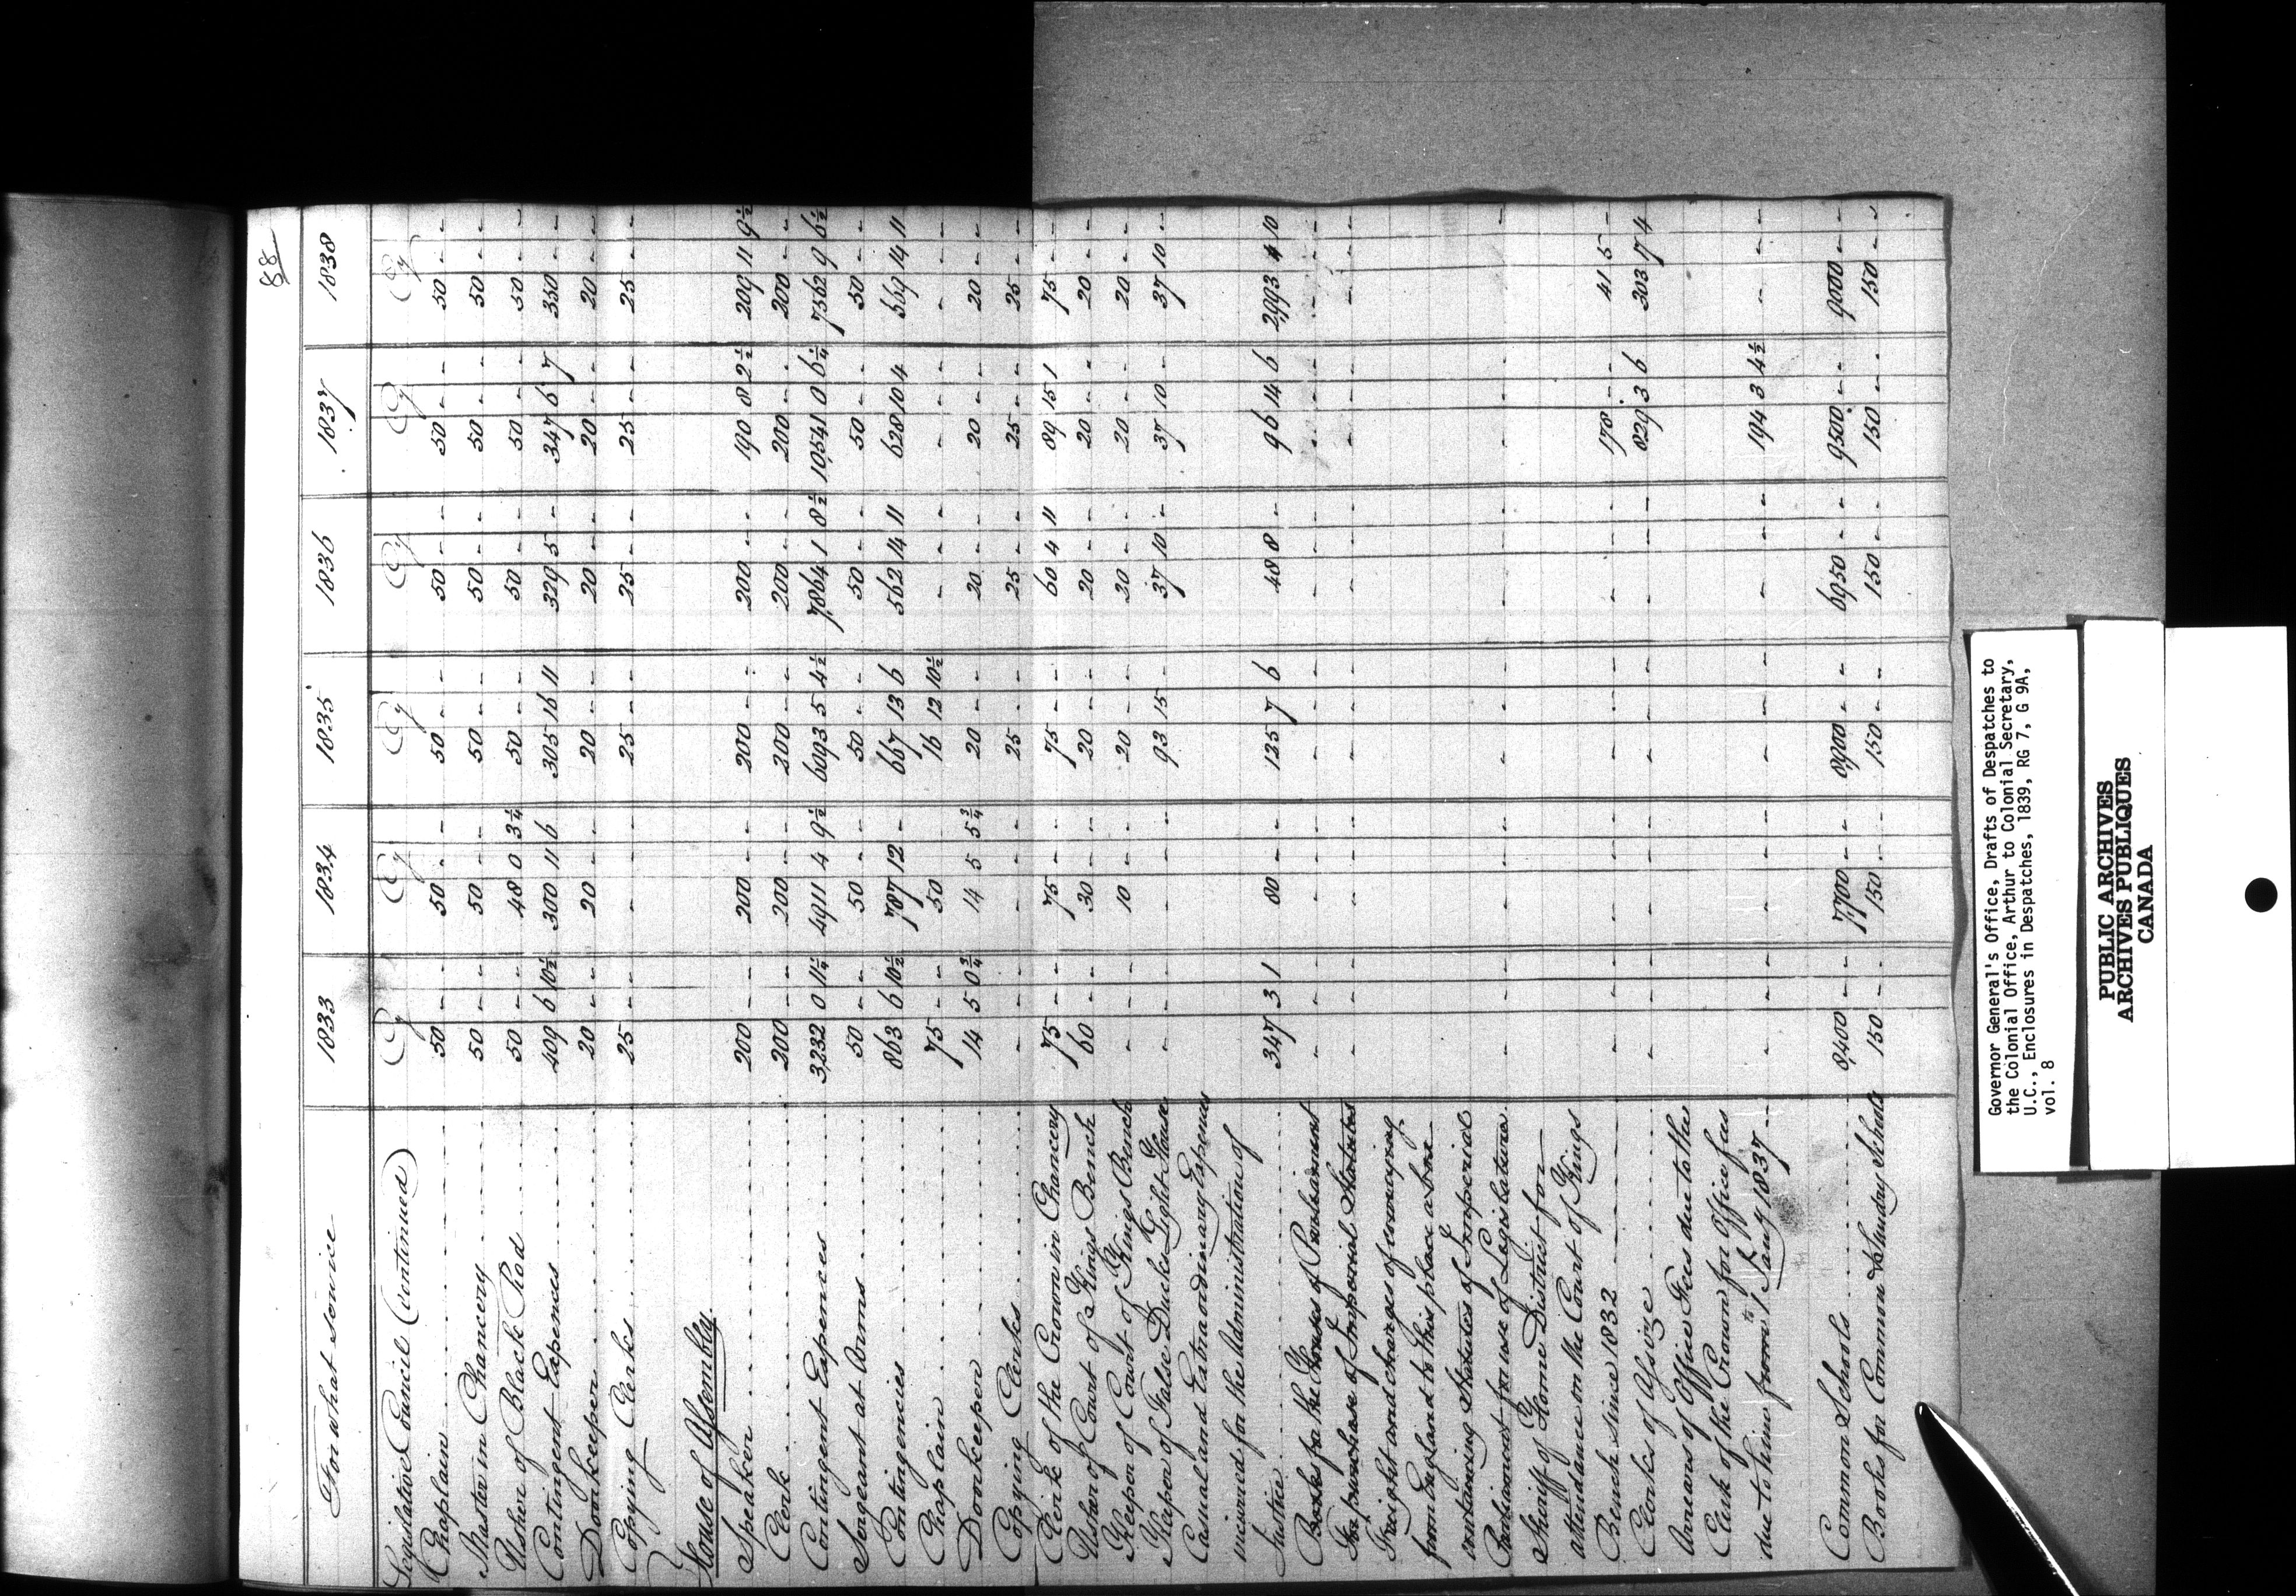 88
For what service 1833 1834 1835 1836 1837 1838
Legislative Council (continued) Cy Cy Cy Cy Cy Cy
Chaplain 50 - - 50 - - 50 - - 50 - - 50 - - 50 - -
Master in Chancery 50 - - 50 - - 50 - - 50 - - 50 - - 50 - -
Usher of Black Rod 50 - - 48 0 3¼ 50 - - 50 - - 50 - - 50 - -
Contingent Expences 409 6 10½ 300 11 6 305 16 11 329 5 - 347 6 7 350 - -
Doorkeeper 20 - - 20 - - 20 - - 20 - - 20 - - 20 - -
Copying Clerks 25 - - - - - 25 - - 25 - - 25 - - 25 - -
House of Assembly
Speaker 200 - - 200 - - 200 - - 200 - - 190 8 2½ 209 11 9½
Clerk 200 - - 200 - - 200 - - 200 - - 200 - - 200 - -
Contingent Expences 3,232 0 11¼ 4911 4 9½ 6093 5 4½ 7,864 1 8½ 10,541 0 6¼ 7562 9 6½
Sergeant at Arms 50 - - 50 - - 50 - - 50 - - 50 - - 50 - -
Contingencies 863 6 10½ 787 12 - 667 13 6 562 14 11 628 10 4 569 14 11
Chaplain 75 - - 50 - - 16 12 10½ - - - - - - - - -
Doorkeeper 14 5 0¾ 14 5 5¾ 20 - - 20 - - 20 - - 20 - -
Copying Clerks - - - - - - 25 - - 25 - - 25 - - 25 - -
Clerk of the Crown in Chancery 75 - - 75 - - 75 - - 60 4 11 89 15 1 75 - -
Usher of Court of Kings Bench 60 - - 30 - - 20 - - 20 - - 20 - - 20 - -
Keeper of Court of Kings Bench - - - 10 - - 20 - - 20 - - 20 - - 20 - -
Keeper of False Ducks Light House - - - - - - 93 15 - 37 10 - 37 10 - 37 10 -
Casual and Extraordinary Expences
incurred for the Administration of
Justice 347 3 1 80 - - 125 7 6 48 8 - 96 14 6 2,993 4 10
Books for the Houses of Parliament - - - - - - - - - - - - - - - - - -
For purchase of Imperial Statutes - - - - - - - - - - - - - - - - - -
Freight and charges of conveying
from England to this place a box
containing Statutes of Imperial
Parliament for use of Legislature - - - - - -
Sheriff of Home District for
attendance on the Court of Kings
Bench since 1832 - - - - - - - - - - - - 178 - - 41 5 -
Clerks of Assize - - - - - - - - - - - - 829 3 6 303 17 4
Arrears of Office Fees due to the
Clerk of the Crown for Office fees
due to him from 1st Jany 1837 - - - - - - - - - - - - 194 3 4½ - - -
Common Schools 8,400 - - 7,700 - - 8,900 - - 6950 - - 9500 - - 9000 - -
Books for Common & Sunday Schools 150 - - 150 - - 150 - - 150 - - 150 - - 150 - -
Governor General's Office, Drafts of Despatches to
the Colonial Office, Arthur to Colonial Secretary,
U.C., Enclosures in Despatches, 1839, RG 7, G 9A,
vol. 8
PUBLIC ARCHIVES
ARCHIVES PUBLIQUES
CANADA